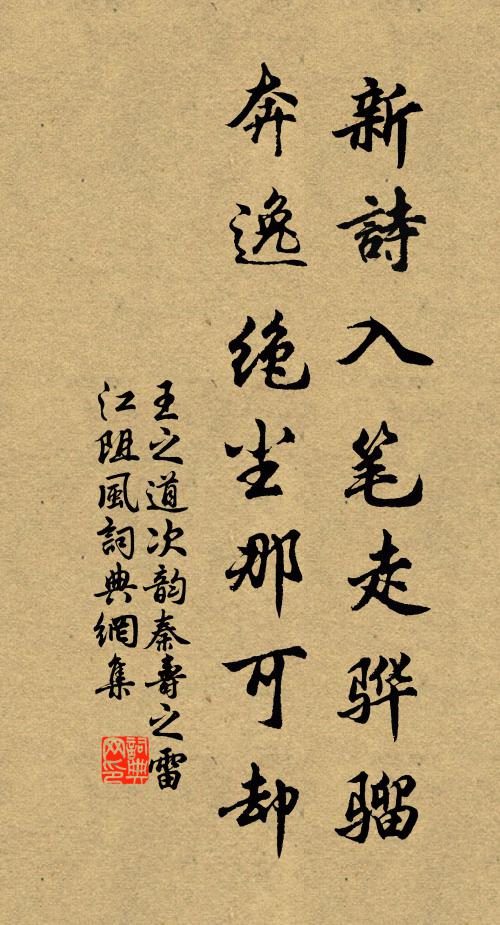 新詩入笔走骅骝
奔逸绝尘那可却
王之道次韵秦寿之雷
江阻風詞典網集
詞典网印